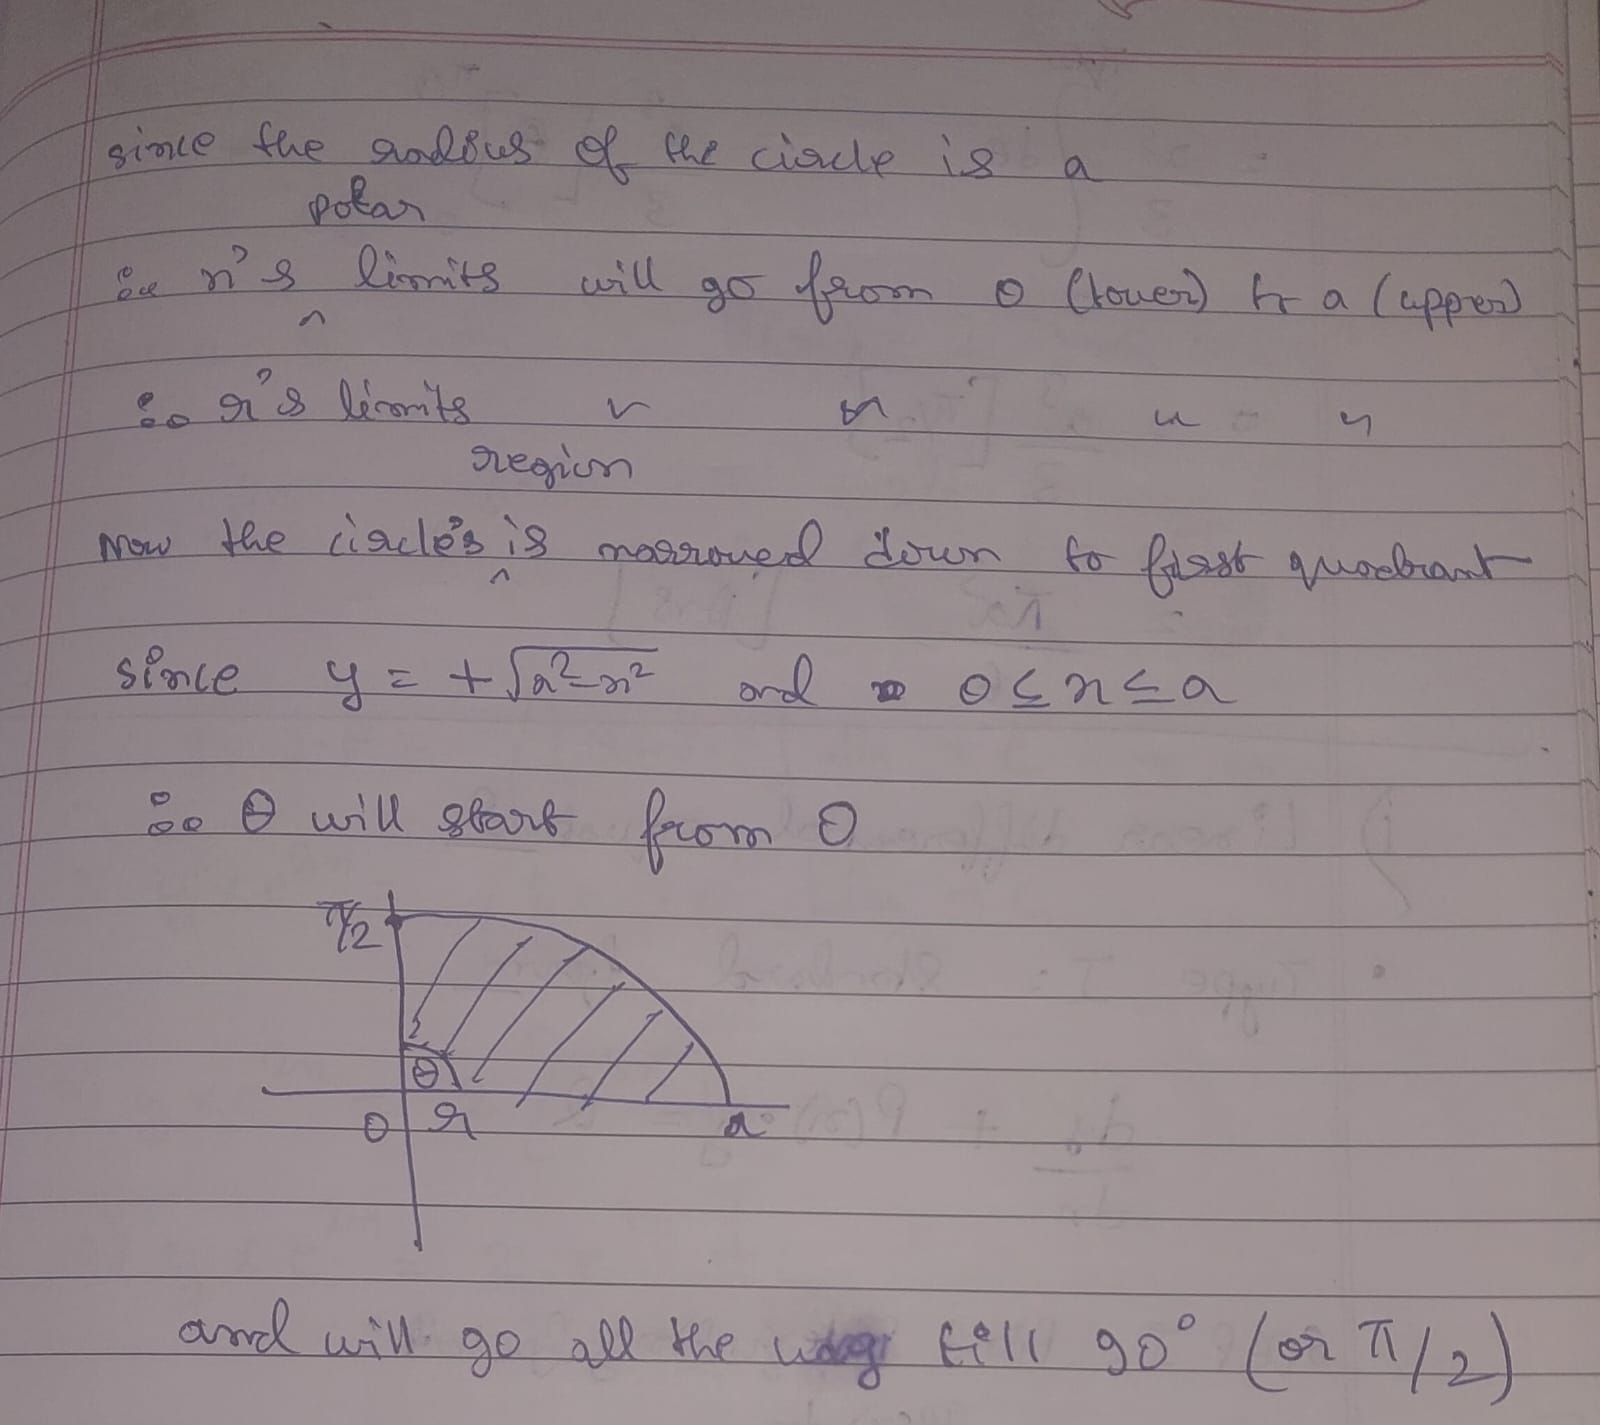 since the radius of the circle is a
polar
∴ x's limits will go from 0 (lower) to a (upper)
^
∴ r's limits " " " "
region
Now the circle's is narrowed down to first quadrant
^
since y = +√a²-x² and 0 ≤ x ≤ a
∴ θ will start from 0
π/2
θ
0 r a
and will go all the way till 90° (or π/2)